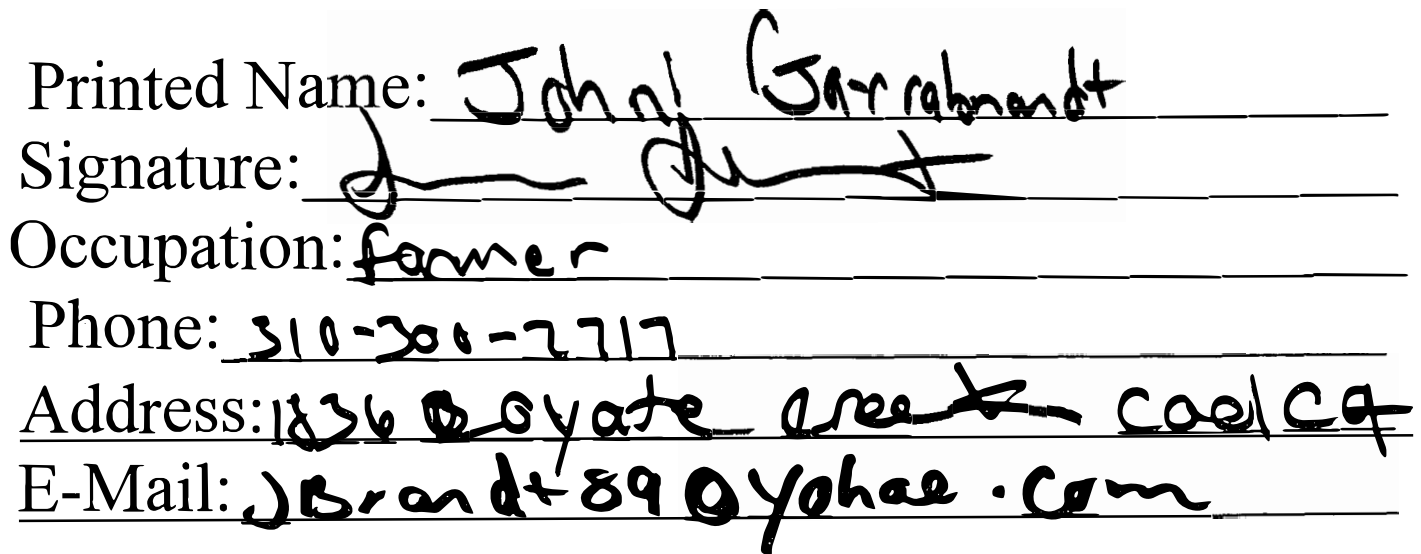 Printed Name: John Garrabrandt
Signature:
Occupation: farmer
Phone: 310-300-2717
Address: 1836 Coyate creek cool ca
E-Mail: JBrandt89@yohae.com